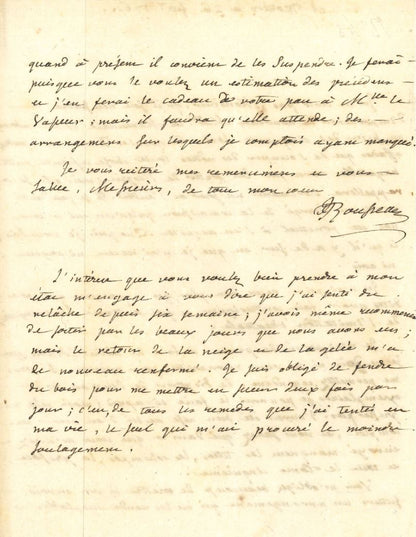 quand à présent il convient de les suspendre. Je ferai
puisque vous le voulez un estimation des précédens
et j'en ferai le cadeau de votre part à Mlle le
Vasseur; mais il faudra qu'elle attende; des
arrangemens sur lesquels je comptois ayant manqué.
Je vous reitére mes remercimens et vous
salue, Messieurs, de tout mon cœur
JJRousseau
L'intérest que vous voulez bien prendre à mon
état m'engage à vous dire que j'ai senti du
relâche depuis six semaine; j'avois même recommencé
de sortir par les beaux jours que nous avons eus;
mais le retour de la neige et de la gelée m'a
de nouveau renfermé. Je suis obligé de fendre
du bois pour me mettre en sueur deux fois par
jour; c'est, de tous les remedes que j'ai tentés en
ma vie, le seul qui m'ait procuré le moindre
soulagement.